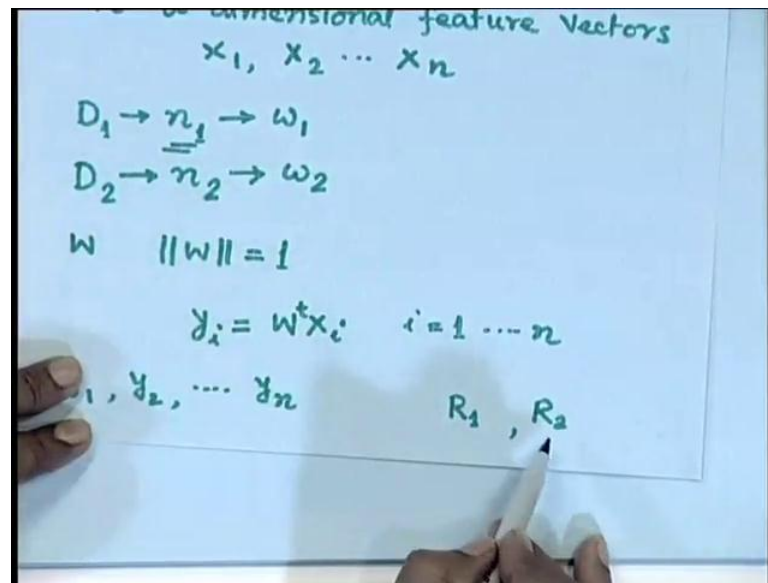 dimensional feature Vectors
X₁, X₂ ... Xₙ
D₁ → n₁ → ω₁
D₂ → n₂ → ω₂
W ||W|| = 1
yᵢ = Wᵗxᵢ i = 1 .... n
₁, y₂, .... yₙ R₁, R₂